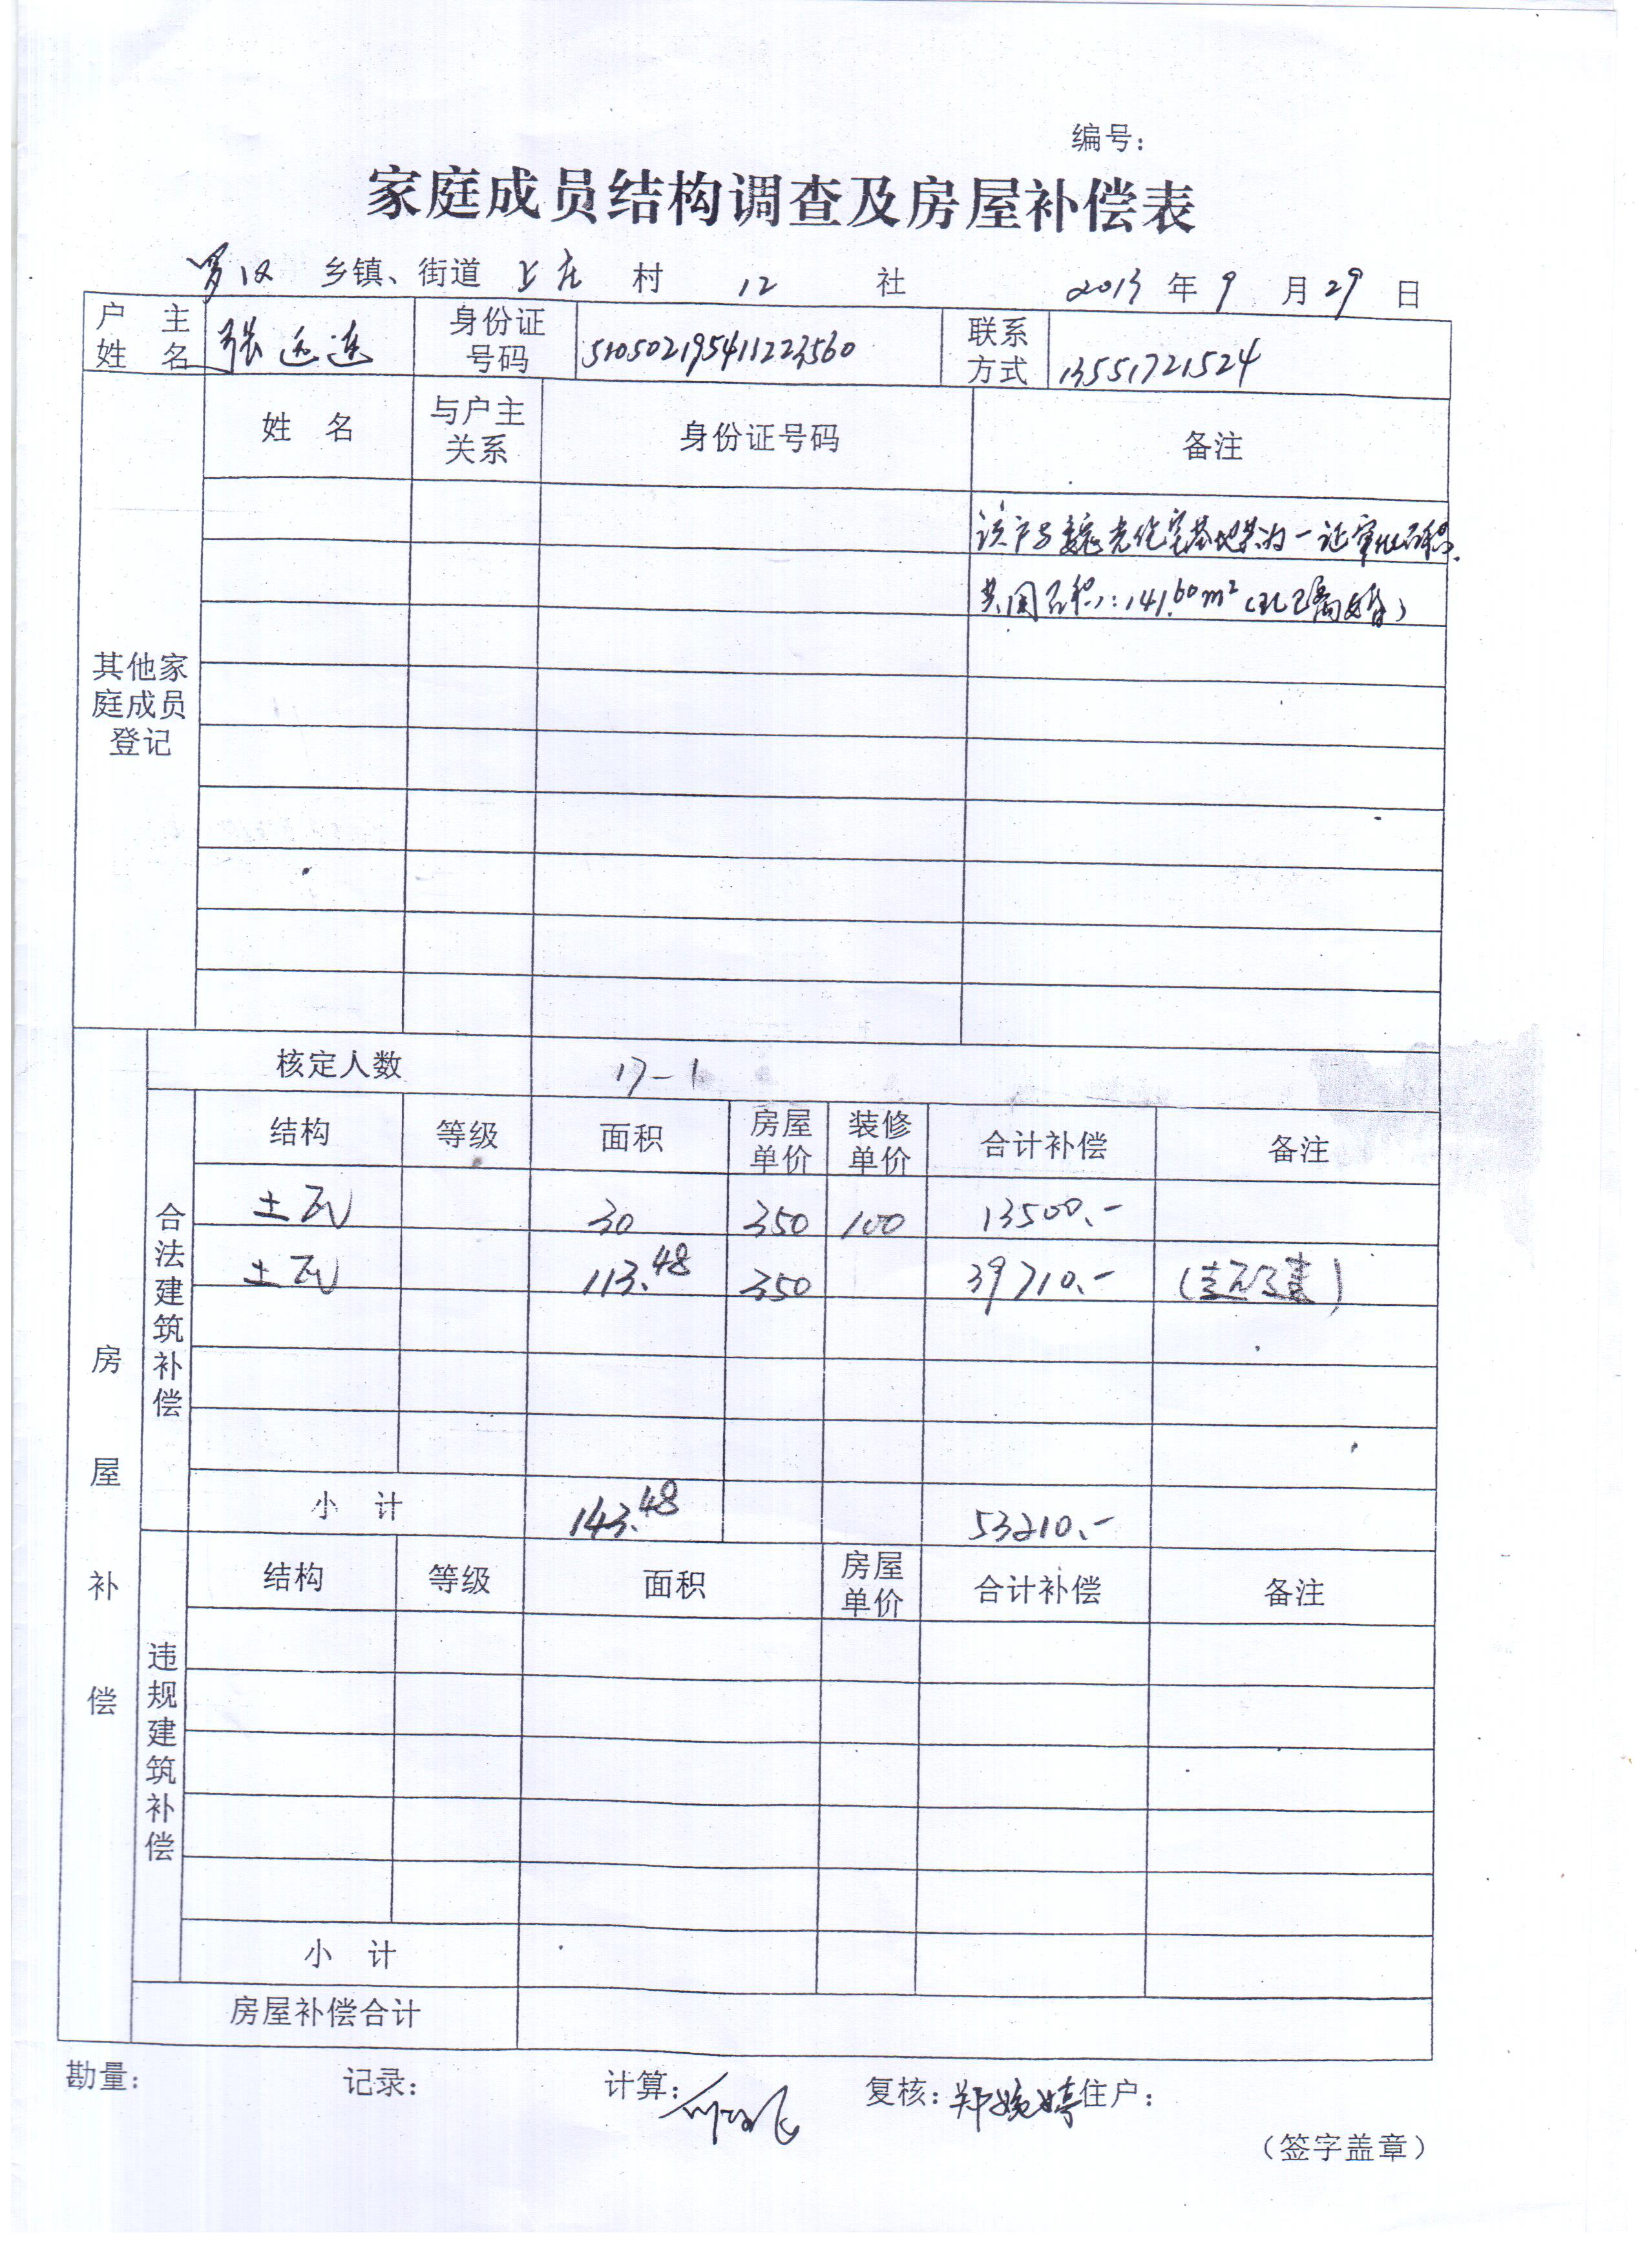 编号：
家庭成员结构调查及房屋补偿表
罗汉 乡镇、街道 上庄 村 12 社 2013 年 9 月 29 日
户主姓名 张远连 身份证号码 510502195411223560 联系方式 13551721524
其他家庭成员登记
姓 名 与户主关系 身份证号码 备注
该户与 光住宅基地共为一证审批面积.
共用面积：141.60m²（现已离婚）
房屋补偿
核定人数 17-1
合法建筑补偿
结构 等级 面积 房屋单价 装修单价 合计补偿 备注
土瓦 30 350 100 13500.-
土瓦 113.48 350 39710.-
小 计 143.48 53210.-
违规建筑补偿
结构 等级 面积 房屋单价 合计补偿 备注
小 计
房屋补偿合计
勘量： 记录： 计算： 复核：郑婉婷 住户：
（签字盖章）